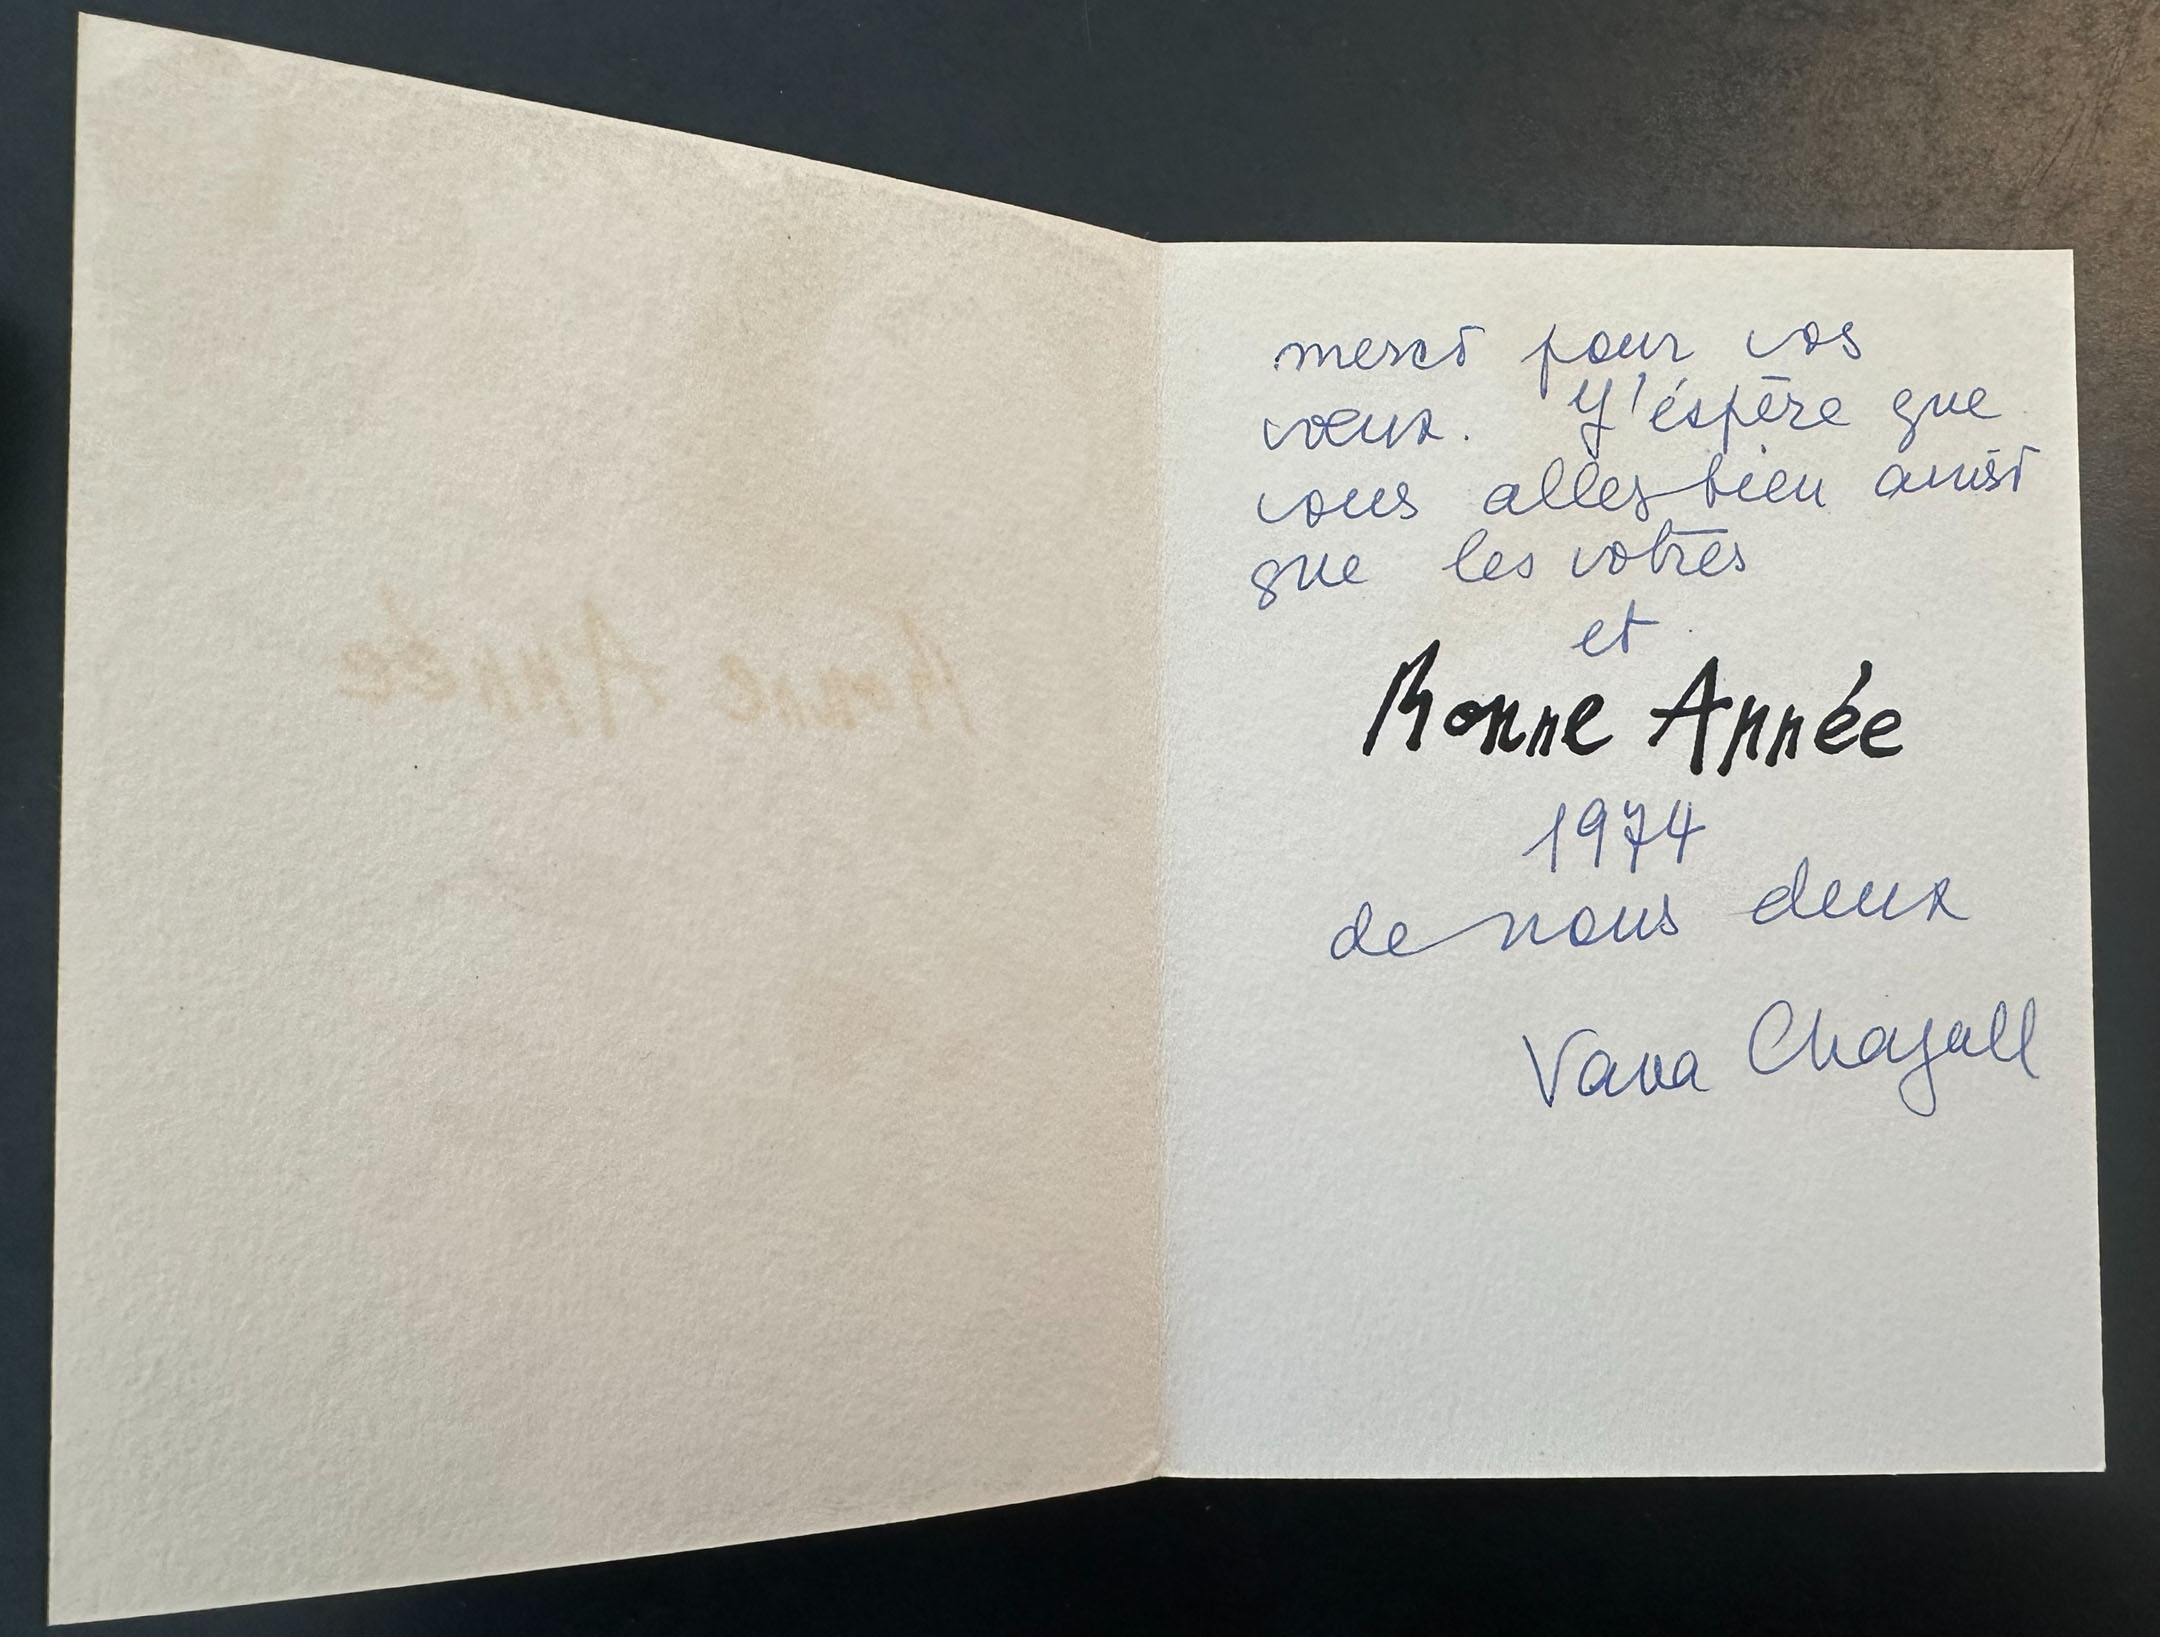 merci pour vos
vœux. J'éspère que
vous allez bien ainsi
que les votres
et
Bonne Année
1974
de nous deux
Vava Chagall